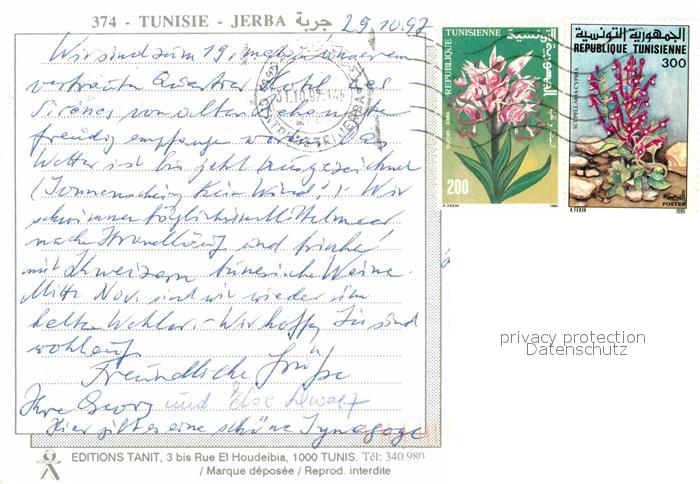 374 - TUNISIE - JERBA جربة 29.10.97
Wir sind zum 19. mal in unserem
vertrauten Quartier Hotel Les
Sirènes von alten
freudig empfangen worden. Das
Wetter ist bis jetzt ausgezeichnet
(Sonnenschein, kein Wind!). Wir
schwimmen täglich im Mittelmeer,
nach und trinken
mit Schweizern tunesische Weine.
Mitte Nov. sind wir wieder im
kalten Wehlar. Wir hoffen, Sie sind
wohlauf.
Freundliche Grüße
Ihre Georg und Else
Hier gibt es eine schöne Synagoge
EDITIONS TANIT, 3 bis Rue El Houdeibia, 1000 TUNIS. Tél: 340.980
/ Marque déposée / Reprod. interdite
REPUBLIQUE TUNISIENNE
الجمهورية التونسية
200
A. FEKIH
الجمهورية التونسية
REPUBLIQUE TUNISIENNE
300
A. FEKIH
POSTES
1995
privacy protection
Datenschutz